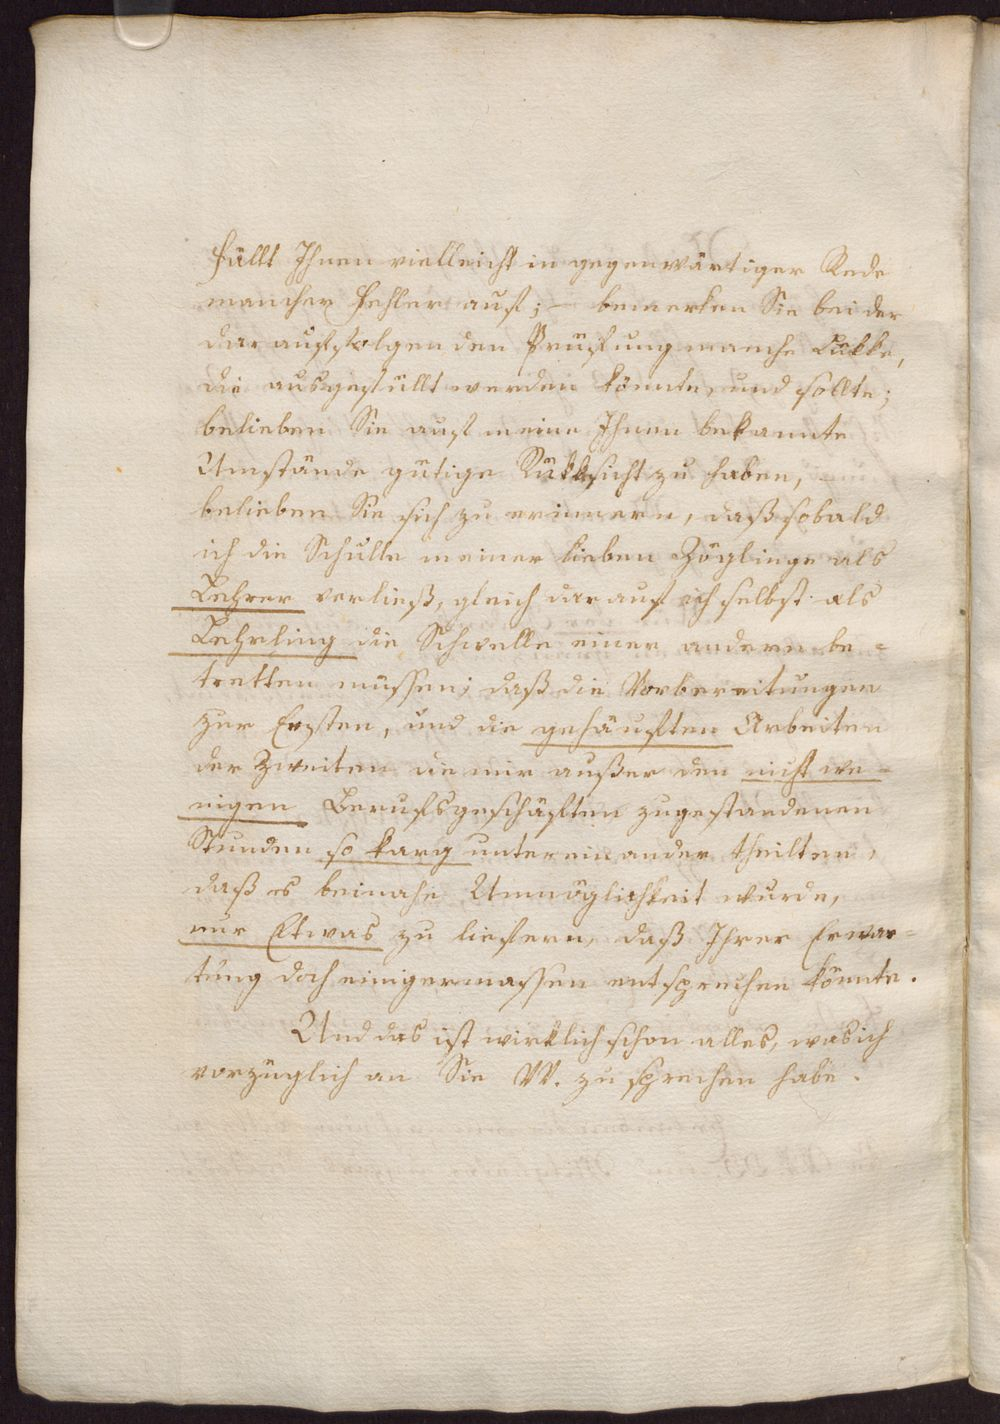 Fällt Ihnen vielleicht in gegenwärtiger Rede
mancher Fehler auf; – bemerken Sie bei der
darauffolgenden Prüfung manche Lükke,
die ausgefüllt werden könnte, und sollte;
belieben Sie auf meine Ihnen bekannte
Umstände gütige Rükksicht zu haben,
belieben Sie sich zu erinnern, daß sobald
ich die Schulle meiner lieben Zöglinge als
Lehrer verließ, gleich darauf ich selbst als
Lehrling die Schwelle einer andern be=
tretten müssen; daß die Vorbereitungen
zur Ersten, und die gehäuften Arbeiten
der Zweiten die mir außer den nicht we=
nigen Berufsgeschäften zugestandenen
Stunden so karg untereinander theilten,
daß es beinahe Unmöglichkeit wurde,
nur Etwas zu liefern, daß Ihrer Erwar=
tung doch einigermassen entsprechen könnte.
Und das ist wirklich schon alles, was ich
vorzüglich an Sie VV. zu sprechen habe.